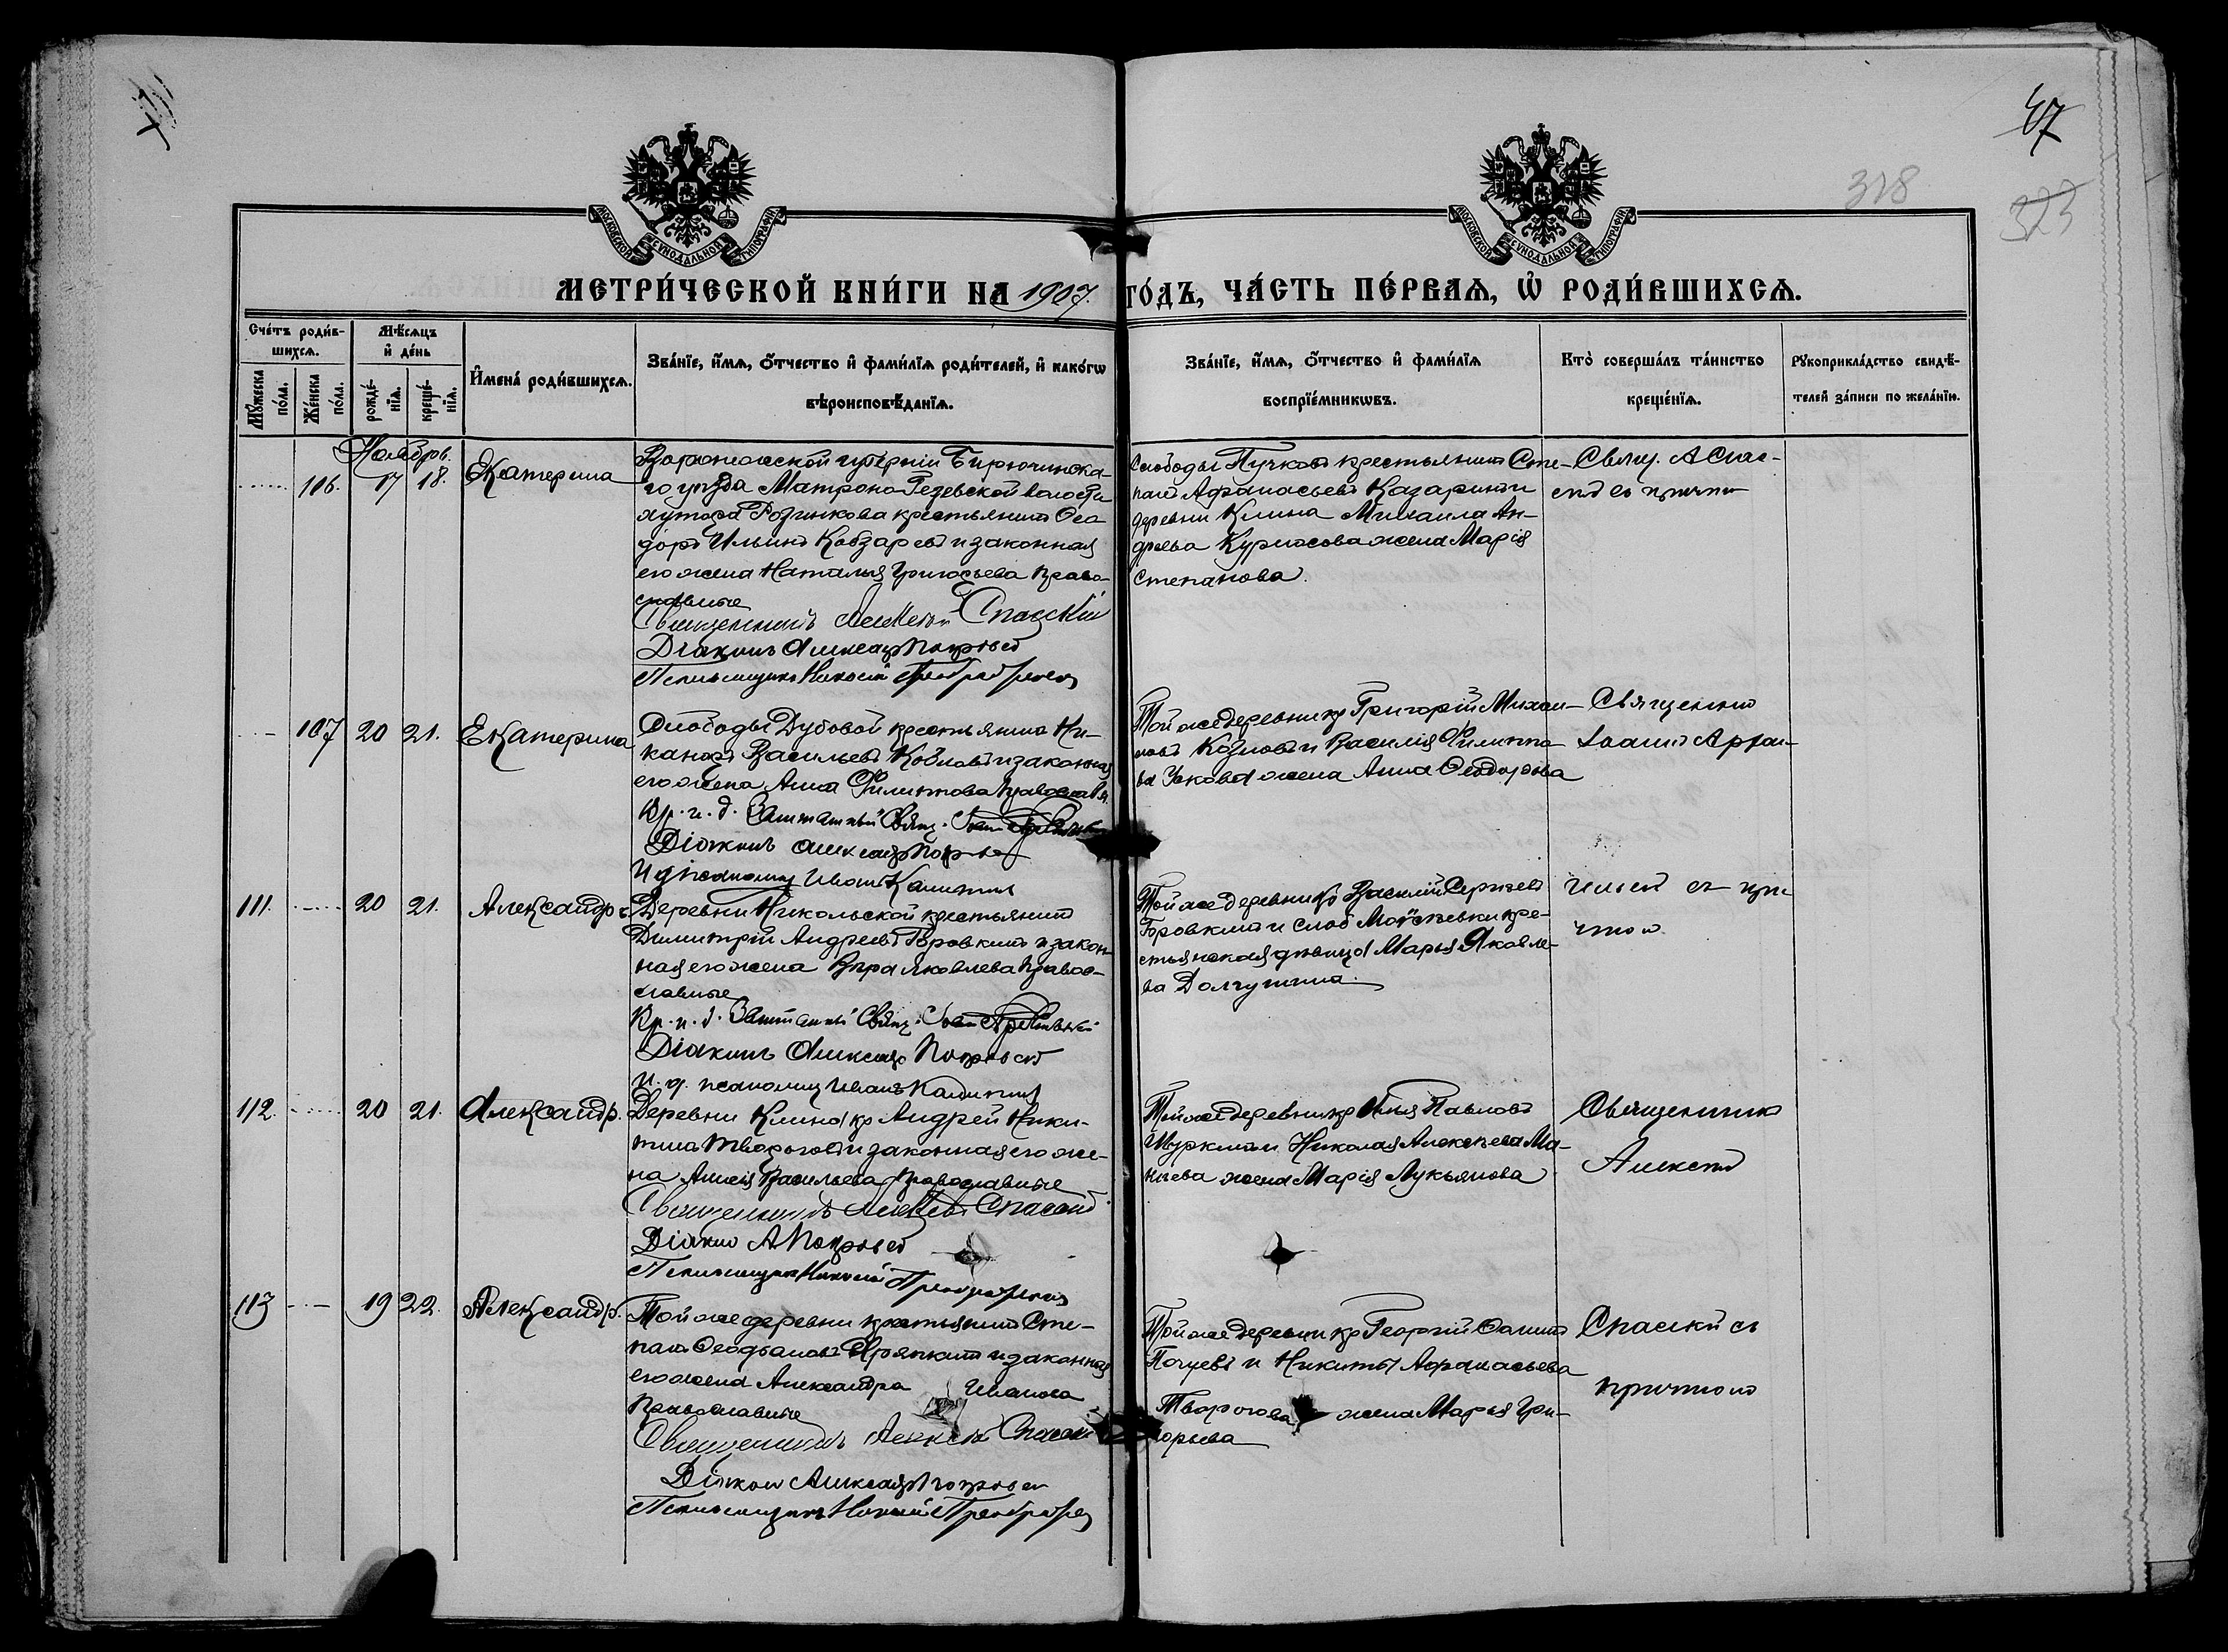 47
318
323
МОСКОВСКОЙ СУНОДАЛЬНОЙ ТИПОГРАФІИ
МОСКОВСКОЙ СУНОДАЛЬНОЙ ТИПОГРАФІИ
МЕТРИ́ЧЕСКОЙ КНИ́ГИ НА 1907 ГО́ДЪ, ЧА́СТЬ ПЕ́РВАѦ, Ѡ҆ РОДИ́ВШИХСѦ.
Сче́тъ роди́в-
шихсѧ.
Мꙋ́жеска по́ла.
Же́нска по́ла.
Мѣ́сѧцъ
и҆ де́нь
рожде́-
нїѧ.
креще́-
нїѧ.
И҆мена̀ роди́вшихсѧ.
Зва́нїе, и҆́мѧ, ѻ҆́тчество и҆ фами́лїѧ роди́телей, и҆ како́гѡ
вѣроисповѣ́данїѧ.
Зва́нїе, и҆́мѧ, ѻ҆́тчество и҆ фами́лїѧ
воспрїе́мникѡвъ.
Кто̀ соверша́лъ та́инство
креще́нїѧ.
Рꙋкоприкла́дство свидѣ́-
телей за́писи по жела́нїю.
Ноябрь.
106. 17 18. Екатерина
Воронежской губерніи Бирючинска-
го уѣзда Матроно-Гезевской волости
хутора Родникова крестьянинъ Ѳео
доръ Ильинъ Кобзаревъ и законная
его жена Наталья Григорьева право-
славные
Священникъ Алексѣй Спасскій
Діаконъ Александръ Покровскій
Псаломщикъ Николай Преображенскій
Слободы Пучковой крестьянинъ Сте-
панъ Аѳанасьевъ Казаринъ и
деревни Клина Михаила Ан-
дреева Курносова жена Марія
Степанова.
Свящ. А Спас-
скій съ причтомъ
107 20 21. Екатерина
Слободы Дубовой крестьянинъ Ни-
каноръ Васильевъ Козловъ и законная
его жена Анна Филиппова православн.
Вр. и. д. Заштатный Свящ. Іоаннъ
Діаконъ Александръ Покровскій
И д псаломщ Иванъ Калинин
Той же деревни кр Григорій Михаи-
ловъ Козловъ и Василія Филиппо-
ва Ускова жена Анна Ѳеодорова
Священникъ
Іоаннъ
111. 20 21. Александръ
Деревни Никольской крестьянинъ
Димитрій Андреевъ Боровкинъ и закон
ная его жена Вѣра Яковлева право-
славные
Вр. и. д. Заштатный Свящ. Іоаннъ
Діаконъ Александр Покровскій
И. д. псаломщ Иванъ Калинин
Той же деревни кр Василій Сергѣевъ
Боровкинъ и слоб Моисѣевки кре-
стьянская дѣвица Марья Яковле-
ва Долгушина.
съ при
чтом
112. 20 21. Александръ.
Деревни Клина кр Андрей Ники-
тинъ Творогов и законная его же-
на Анисія Васильева православные
Священникъ Алексѣй Спасскій
Діаконъ А Покровскій
Псаломщикъ Николай Преображенскій
Той же деревни кр Илья Павловъ
Шуркинъ и Николая Алексѣева Ма-
нѣева жена Марія Лукьянова
Священникъ
Алексѣй
113 19 22. Александръ.
Той же деревни крестьянинъ Сте-
панъ и законная
его жена Александра Иванова
Православные
Священникъ Алексѣй Спасскій
Діаконъ Александръ Покровскій
Псаломщикъ Николай Преображенскій
Той же деревни кр Георгій
и Никиты Аѳанасьева
Творогова жена Марья Гри-
горьева
Спасскій съ
причтомъ